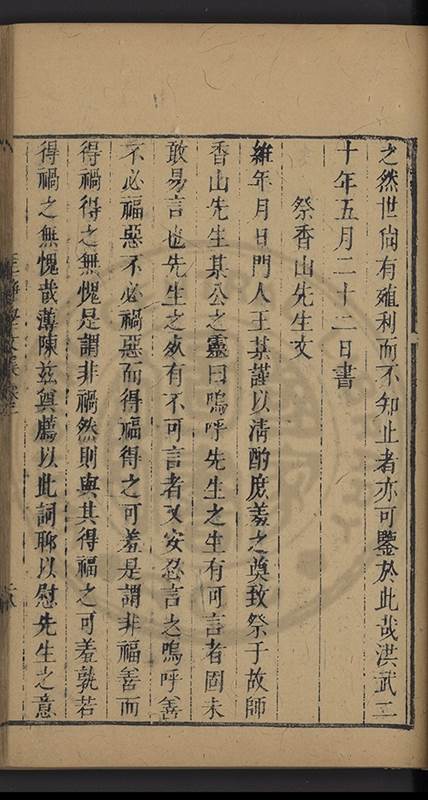 之然世尙有殖利而不知止者亦可鑒於此哉洪武三
十年五月二十二日書
祭香山先生文
維年月日門人王某謹以淸酌庶羞之奠致祭于故師
香山先生某公之靈曰嗚呼先生之生有可言者固未
敢易言也先生之故有不可言者又安忍言之嗚呼善
不必福惡不必禍惡而得福得之可羞是謂非福善而
得禍得之無愧是謂非禍然則與其得福之可羞孰若
得禍之無愧哉薄陳玆奠薦以此詞聊以慰先生之意